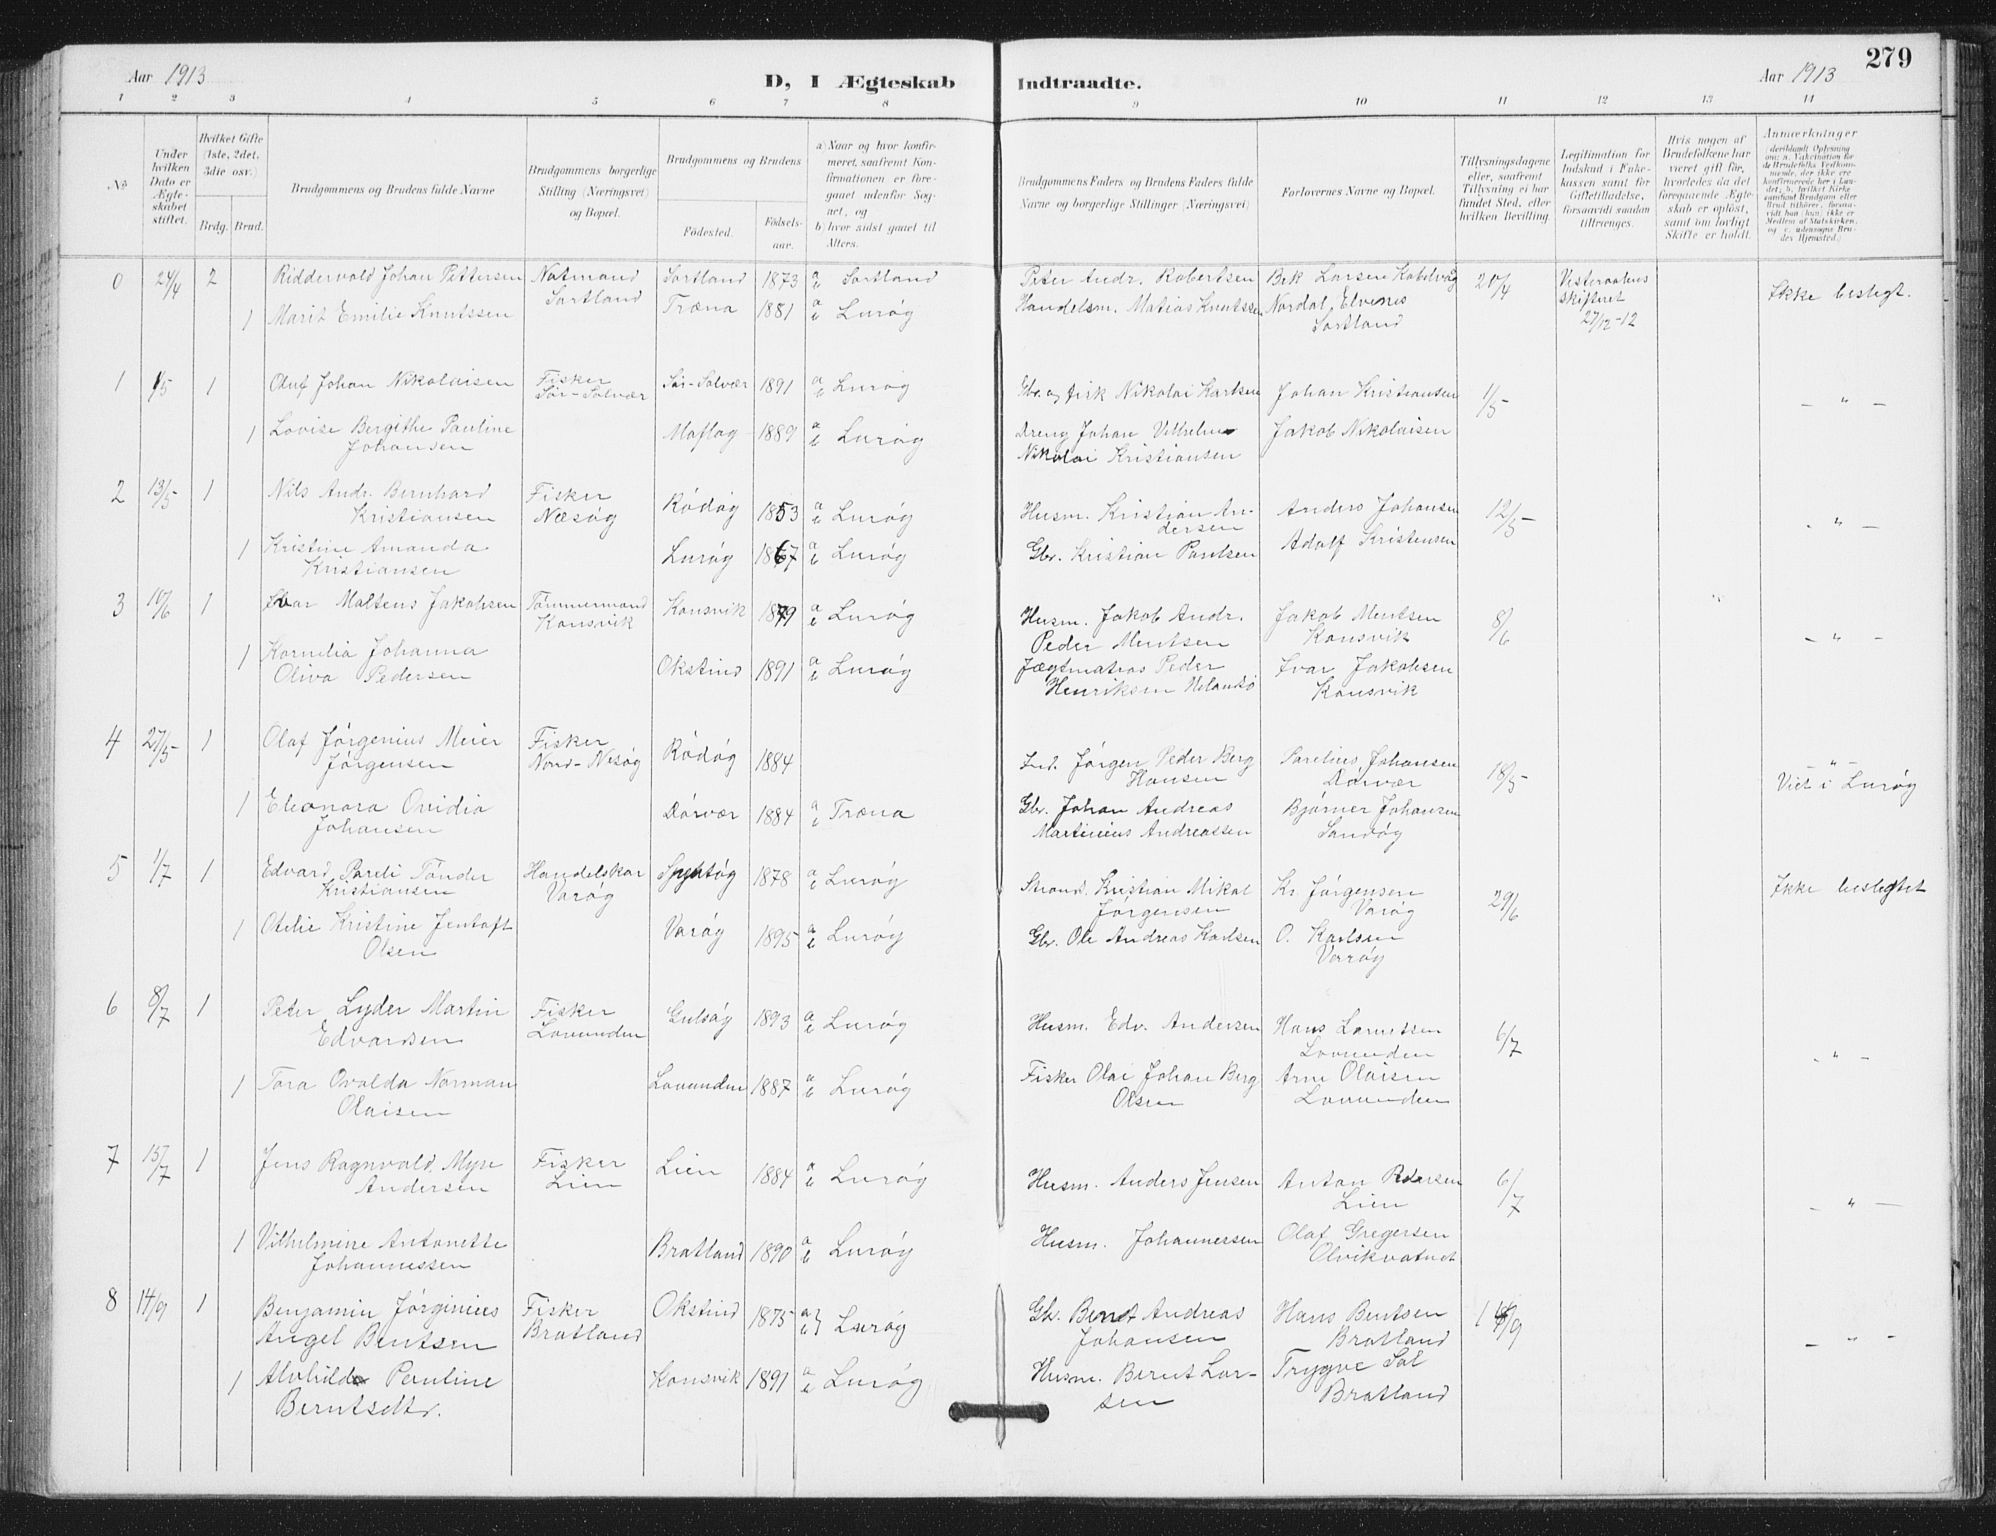 Aar 1913
D, I Ægteskab
Indtraadte.
Aar 1913
279
1 2 3 4 5 6 7 8 9 10 11 12 13 14
No
Under hvilken Dato er Ægteskabet stiftet.
Hvilket Gifte (1ste, 2det, 3die osv.)
Brdg. Brud.
Brudgommens og Brudens fulde Navne
Brudgommens borgerlige Stilling (Næringsvei) og Bopæl.
Brudgommens og Brudens
Fødested.
Fødselsaar.
a) Naar og hvor konfirmeret, saafremt Konfirmationen er foregaaet udenfor Sognet, og
b) hvor sidst gaaet til Alters.
Brudgommens Faders og Brudens Faders fulde Navne og borgerlige Stillinger (Næringsvei)
Forlovernes Navne og Bopæl.
Tillysningsdagene eller, saafremt Tillysning ei har fundet Sted, efter hvilken Bevilling.
Legitimation for Indskud i Enkekassen samt for Giftetilladelse, forsaavidt saadan tiltrænges.
Hvis nogen af Brudefolkene har været gift før, hvorledes da det foregaaende Ægteskab er opløst, samt om lovligt Skifte er holdt.
Anmærkninger
0 24/4 2 Riddervold Johan Pettersen Notmand Sortland Sortland 1873 a b Sortland Peter Andr. Robertsen Bek Larsen Kabelvåg 20/4 Vesteraalens skifteret 27/12-12 Ikke beslegt.
1 Marit Emilie Knutssen Træna 1881 a b Lurøy Handelsm. Matias Knutssen Nordal, Elvenes Sortland
1 1/5 1 Oluf Johan Nikolaisen Fisker Sør-Solvær Sør-Solvær 1891 a b Lurøy Gbr. og fisk Nikolai Karlsen Johan Kristiansen 1/5 — " —
1 Lovise Bergithe Pauline Johansen Moflag 1889 a b Lurøy Dreng Johan Vilhelm Nikolai Kristiansen Jakob Nikolaisen
2 13/5 1 Nils Andr. Bernhard Kristiansen Fisker Næsøy Rødøy 1853 a b Lurøy Husm. Kristian Andersen Anders Johansen 12/5 - " —
1 Kristine Amanda Kristiansen Lurøy 1867 a b Lurøy Gbr. Kristian Paulsen Adolf Kristensen
3 10/6 1 Ivar Maltens Jakobsen Tømmermand Konsvik Konsvik 1879 a b Lurøy Husm. Jakob Andr. Peder Mentsen Jakob Mentsen Konsvik 8/6 — " —
1 Kornelia Johanna Oliva Pedersen Okstind 1891 a b Lurøy Jægtmatros Peder Henriksen Ivar Jakobsen Konsvik
4 27/5 1 Olaf Jørgenius Meier Jørgensen Fisker Nord-Nesøy Rødøy 1884 Ind. Jørgen Peder Berg Hansen Parelius Johansen Dørvær 18/5 — " — Viet i Lurøy
1 Eleonora Ovidia Johansen Dørvær 1884 a b Træna Gbr. Johan Andreas Martinius Andreassen Bjørner Johansen Sandøy
5 1/7 1 Edvard Pareli Tønder Kristiansen Handelskar Varøy 1878 a b Lurøy Strand. Kristian Mikal Jørgensen Kr. Jørgensen Varøy 29/6 Ikke beslegtet
1 Otelie Kristine Jentoft Olsen Varøy 1895 a b Lurøy Gbr. Ole Andreas Karlsen O. Karlsen Varøy
6 8/7 1 Peter Lyder Martin Edvardsen Fisker Lovunden Gulsøy 1893 a b Lurøy Husm. Edv. Andersen Hans Lorntsen Lovunden 6/7 - " —
1 Tora Ovalda Norman Olaisen Lovunden 1887 a b Lurøy Fisker Olai Johan Berg Olsen Arne Olaisen Lovunden
7 15/7 1 Jens Ragnvald Myse Andersen Fisker Lien Lien 1884 a b Lurøy Husm. Anders Jensen Anton Pedersen Lien 6/7 — " —
1 Vilhelmine Antonette Johannessen Bratland 1890 a b Lurøy Husm. Johannessen Olaf Gregersen Olvikvatnet
8 14/9 1 Benjamin Jørginius Angel Bentsen Fisker Bratland Okstind 1875 a b Lurøy Gbr. Bendt Andreas Johansen Hans Bentsen Bratland 14/9 — " —
1 Alvhilde Pauline Berntsdtr. Konsvik 1891 a b Lurøy Husm. Bernt Larsen Trygve Sol Bratland